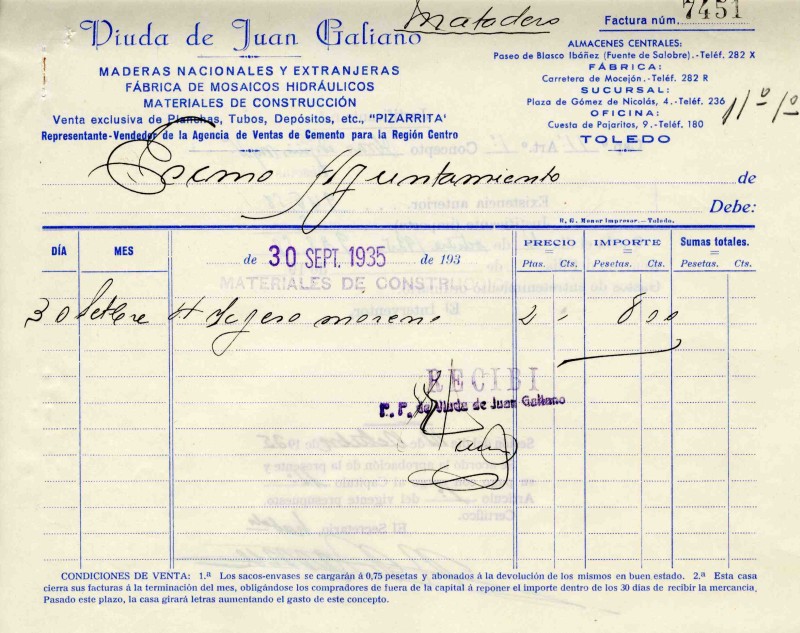 Matadero
Factura núm. 7451
Viuda de Juan Galiano
MADERAS NACIONALES Y EXTRANJERAS
FÁBRICA DE MOSAICOS HIDRÁULICOS
MATERIALES DE CONSTRUCCIÓN
Venta exclusiva de Planchas, Tubos, Depósitos, etc., "PIZARRITA'
Representante-Vendedor de la Agencia de Ventas de Cemento para la Región Centro
ALMACENES CENTRALES:
Paseo de Blasco Ibáñez (Fuente de Salobre).-Teléf. 282 X
FÁBRICA:
Carretera de Mocejón.-Teléf. 282 R
SUCURSAL:
Plaza de Gómez de Nicolás, 4.-Teléf. 236
OFICINA:
Cuesta de Pajaritos, 9.-Teléf. 180
TOLEDO
Excmo Ayuntamiento de
Debe:
R. G. Menor Impresor.-Toledo.
DÍA MES de 30 SEPT. 1935 de 193 PRECIO IMPORTE Sumas totales.
Ptas. Cts. Pesetas. Cts. Pesetas. Cts.
MATERIALES DE CONSTRUC
30 Setbre 4 yeso moreno 2 - 8 00
RECIBI
P. P. de Viuda de Juan Galiano
CONDICIONES DE VENTA: 1.ª Los sacos-envases se cargarán á 0,75 pesetas y abonados á la devolución de los mismos en buen estado. 2.ª Esta casa
cierra sus facturas á la terminación del mes, obligándose los compradores de fuera de la capital á reponer el importe dentro de los 30 días de recibir la mercancía.
Pasado este plazo, la casa girará letras aumentando el gasto de este concepto.